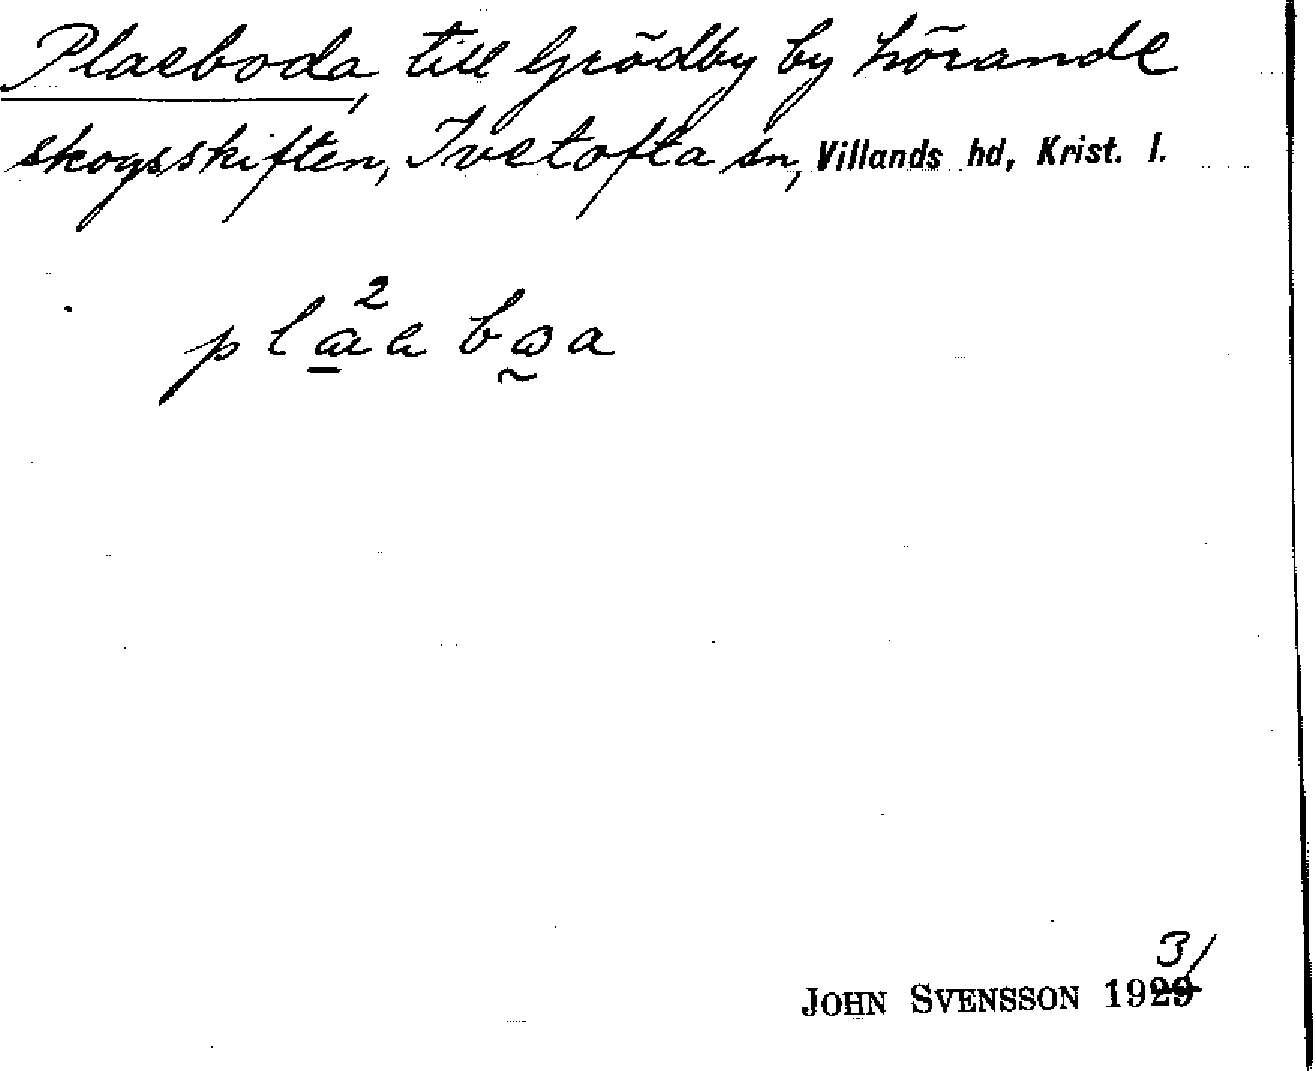 Plaeboda, till Grödby by hörande
skogsskiften, Ivetofta sn, Villands hd, Krist. l.
JOHN SVENSSON 1931